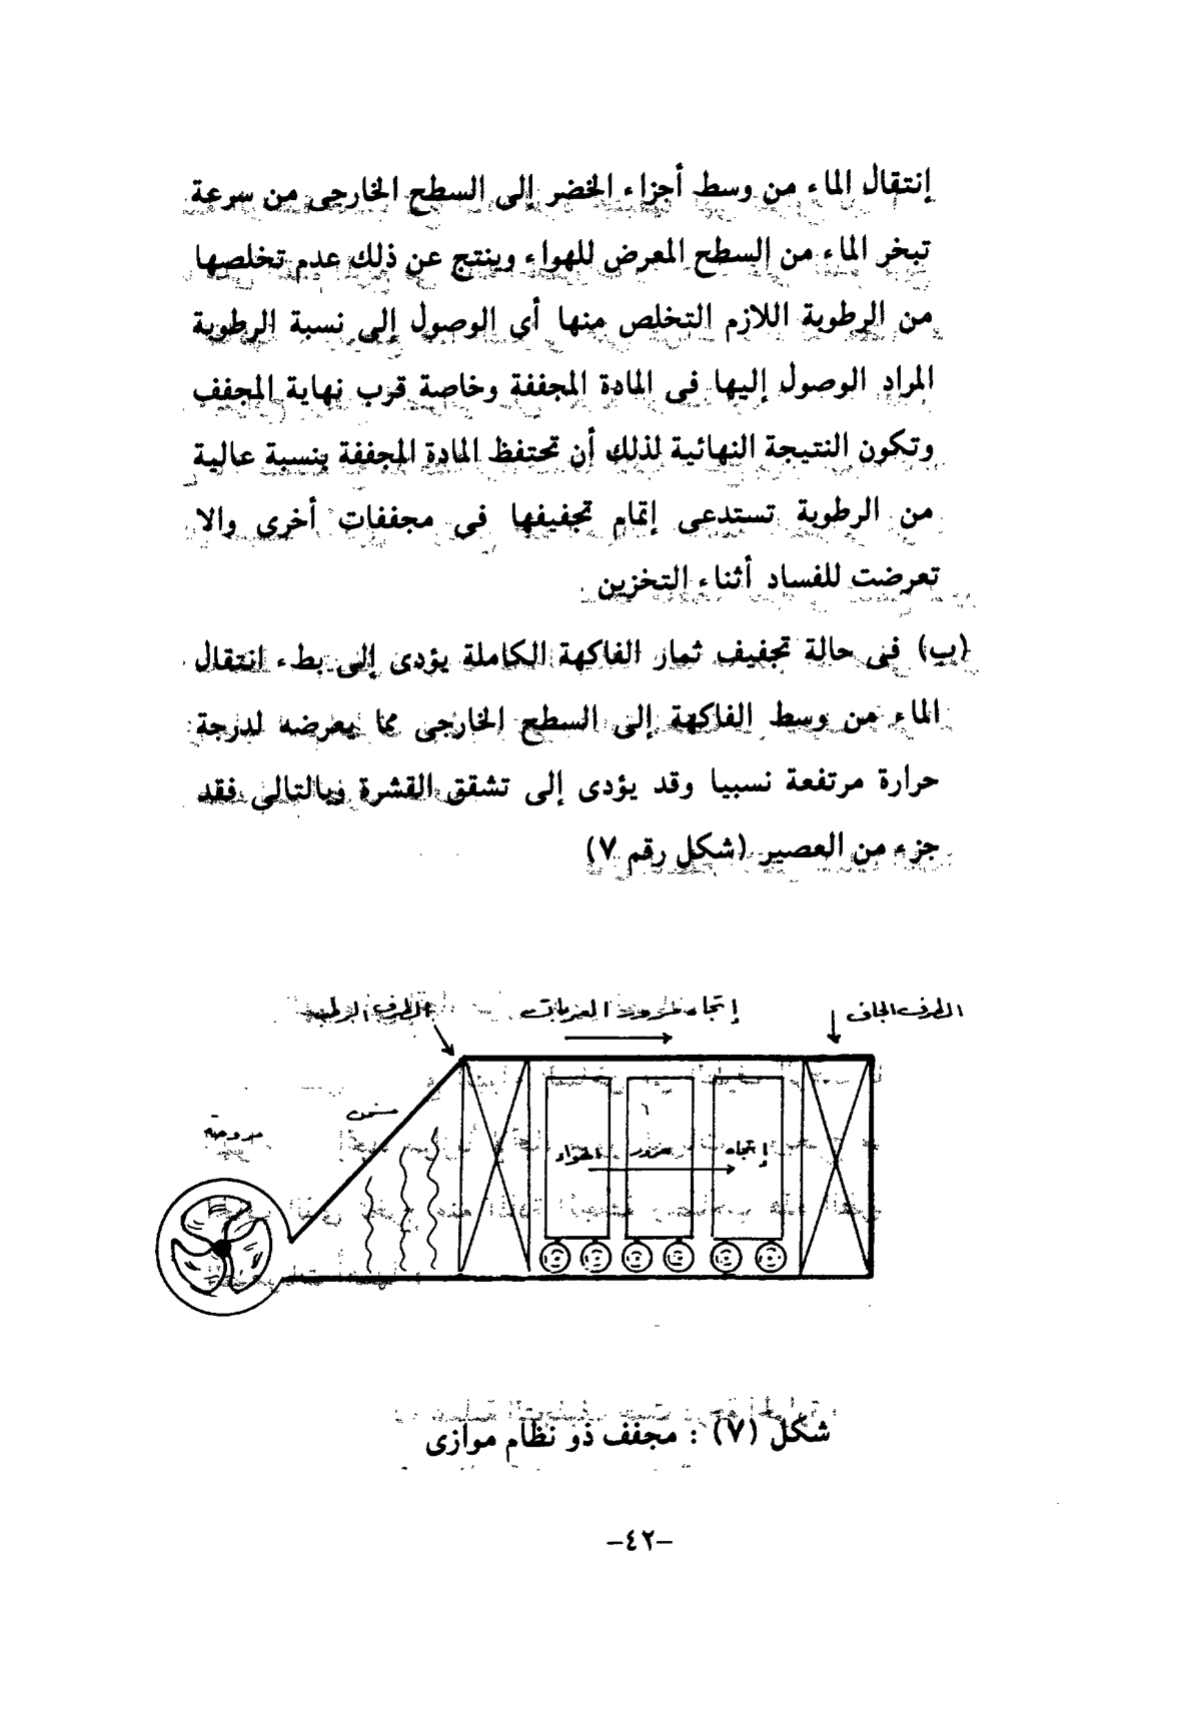 إنتقال الماء من وسط أجزاء الخضر إلى السطح الخارجى من سرعة
تبخر الماء من السطح المعرض للهواء وينتج عن ذلك عدم تخلصها
من الرطوبة اللازم التخلص منها أى الوصول إلى نسبة الرطوبة
المراد الوصول إليها فى المادة المجففة وخاصة قرب نهاية المجفف
وتكون النتيجة النهائية لذلك أن تحتفظ المادة المجففة بنسبة عالية
من الرطوبة تستدعى إتمام تجفيفها فى مجففات أخرى والا
تعرضت للفساد أثناء التخزين .
(ب) فى حالة تجفيف ثمار الفاكهة الكاملة يؤدى إلى بطء انتقال
الماء من وسط الفاكهة إلى السطح الخارجى مما يعرضه لدرجة
حرارة مرتفعة نسبيا وقد يؤدى إلى تشقق القشرة وبالتالى فقد
جزء من العصير (شكل رقم ٧)
الطرف الجاف
إتجاه مرور العربات
الطرف الرطب
مسخن
مروحة
إتجاه مرور الهواء
شكل (٧) : مجفف ذو نظام موازى
-٤٢-